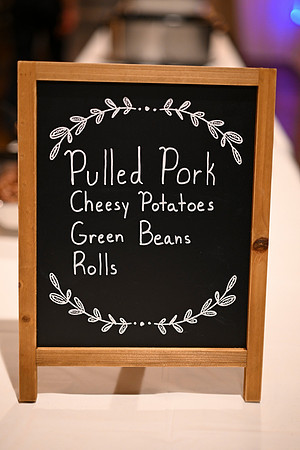 Pulled Pork
Cheesy Potatoes
Green Beans
Rolls